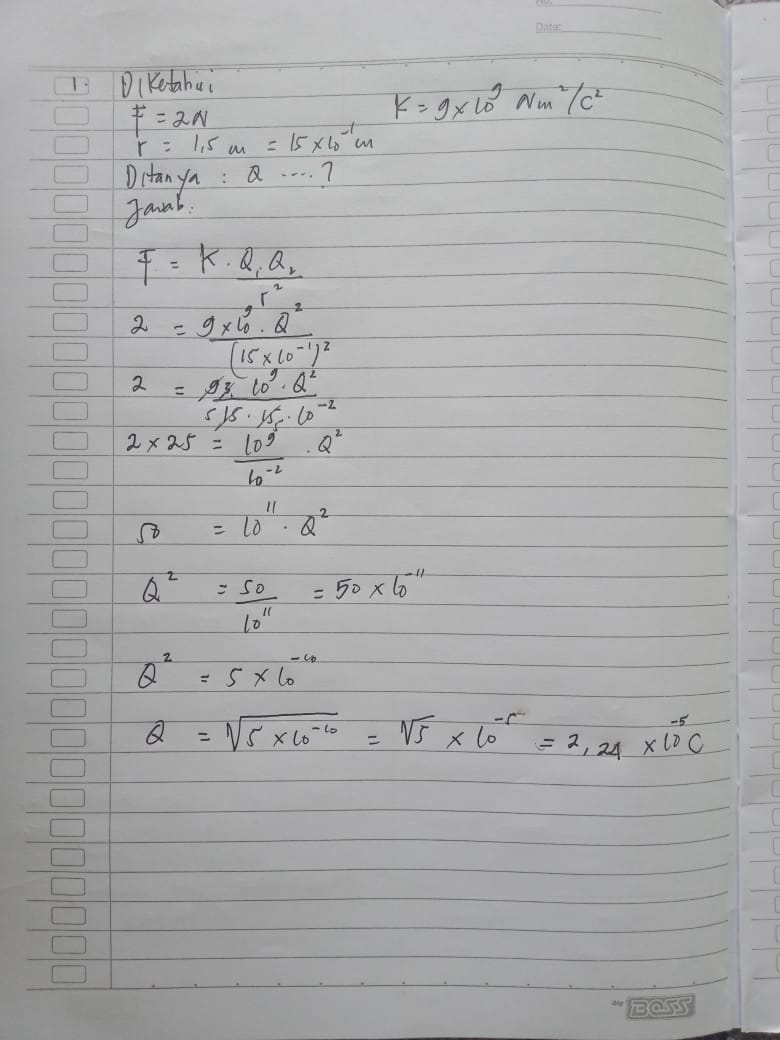 No.
Date:
1. Diketahui
F = 2N K = 9 × 10⁹ Nm²/C²
r = 1,5 m = 15 × 10⁻¹ m
Ditanya : Q ....?
Jawab:
F = K . Q₁ Q₂
r²
2 = 9 × 10⁹ . Q²
(15 × 10⁻¹)²
2 = 9 3. 10⁹ . Q²
5 15 . 15 5 . 10⁻²
2 × 25 = 10⁹ . Q²
10⁻²
50 = 10¹¹ . Q²
Q² = 50 = 50 × 10⁻¹¹
10¹¹
Q² = 5 × 10⁻¹⁰
Q = √5 × 10⁻¹⁰ = √5 × 10⁻⁵ = 2,24 × 10⁻⁵ C
BOSS